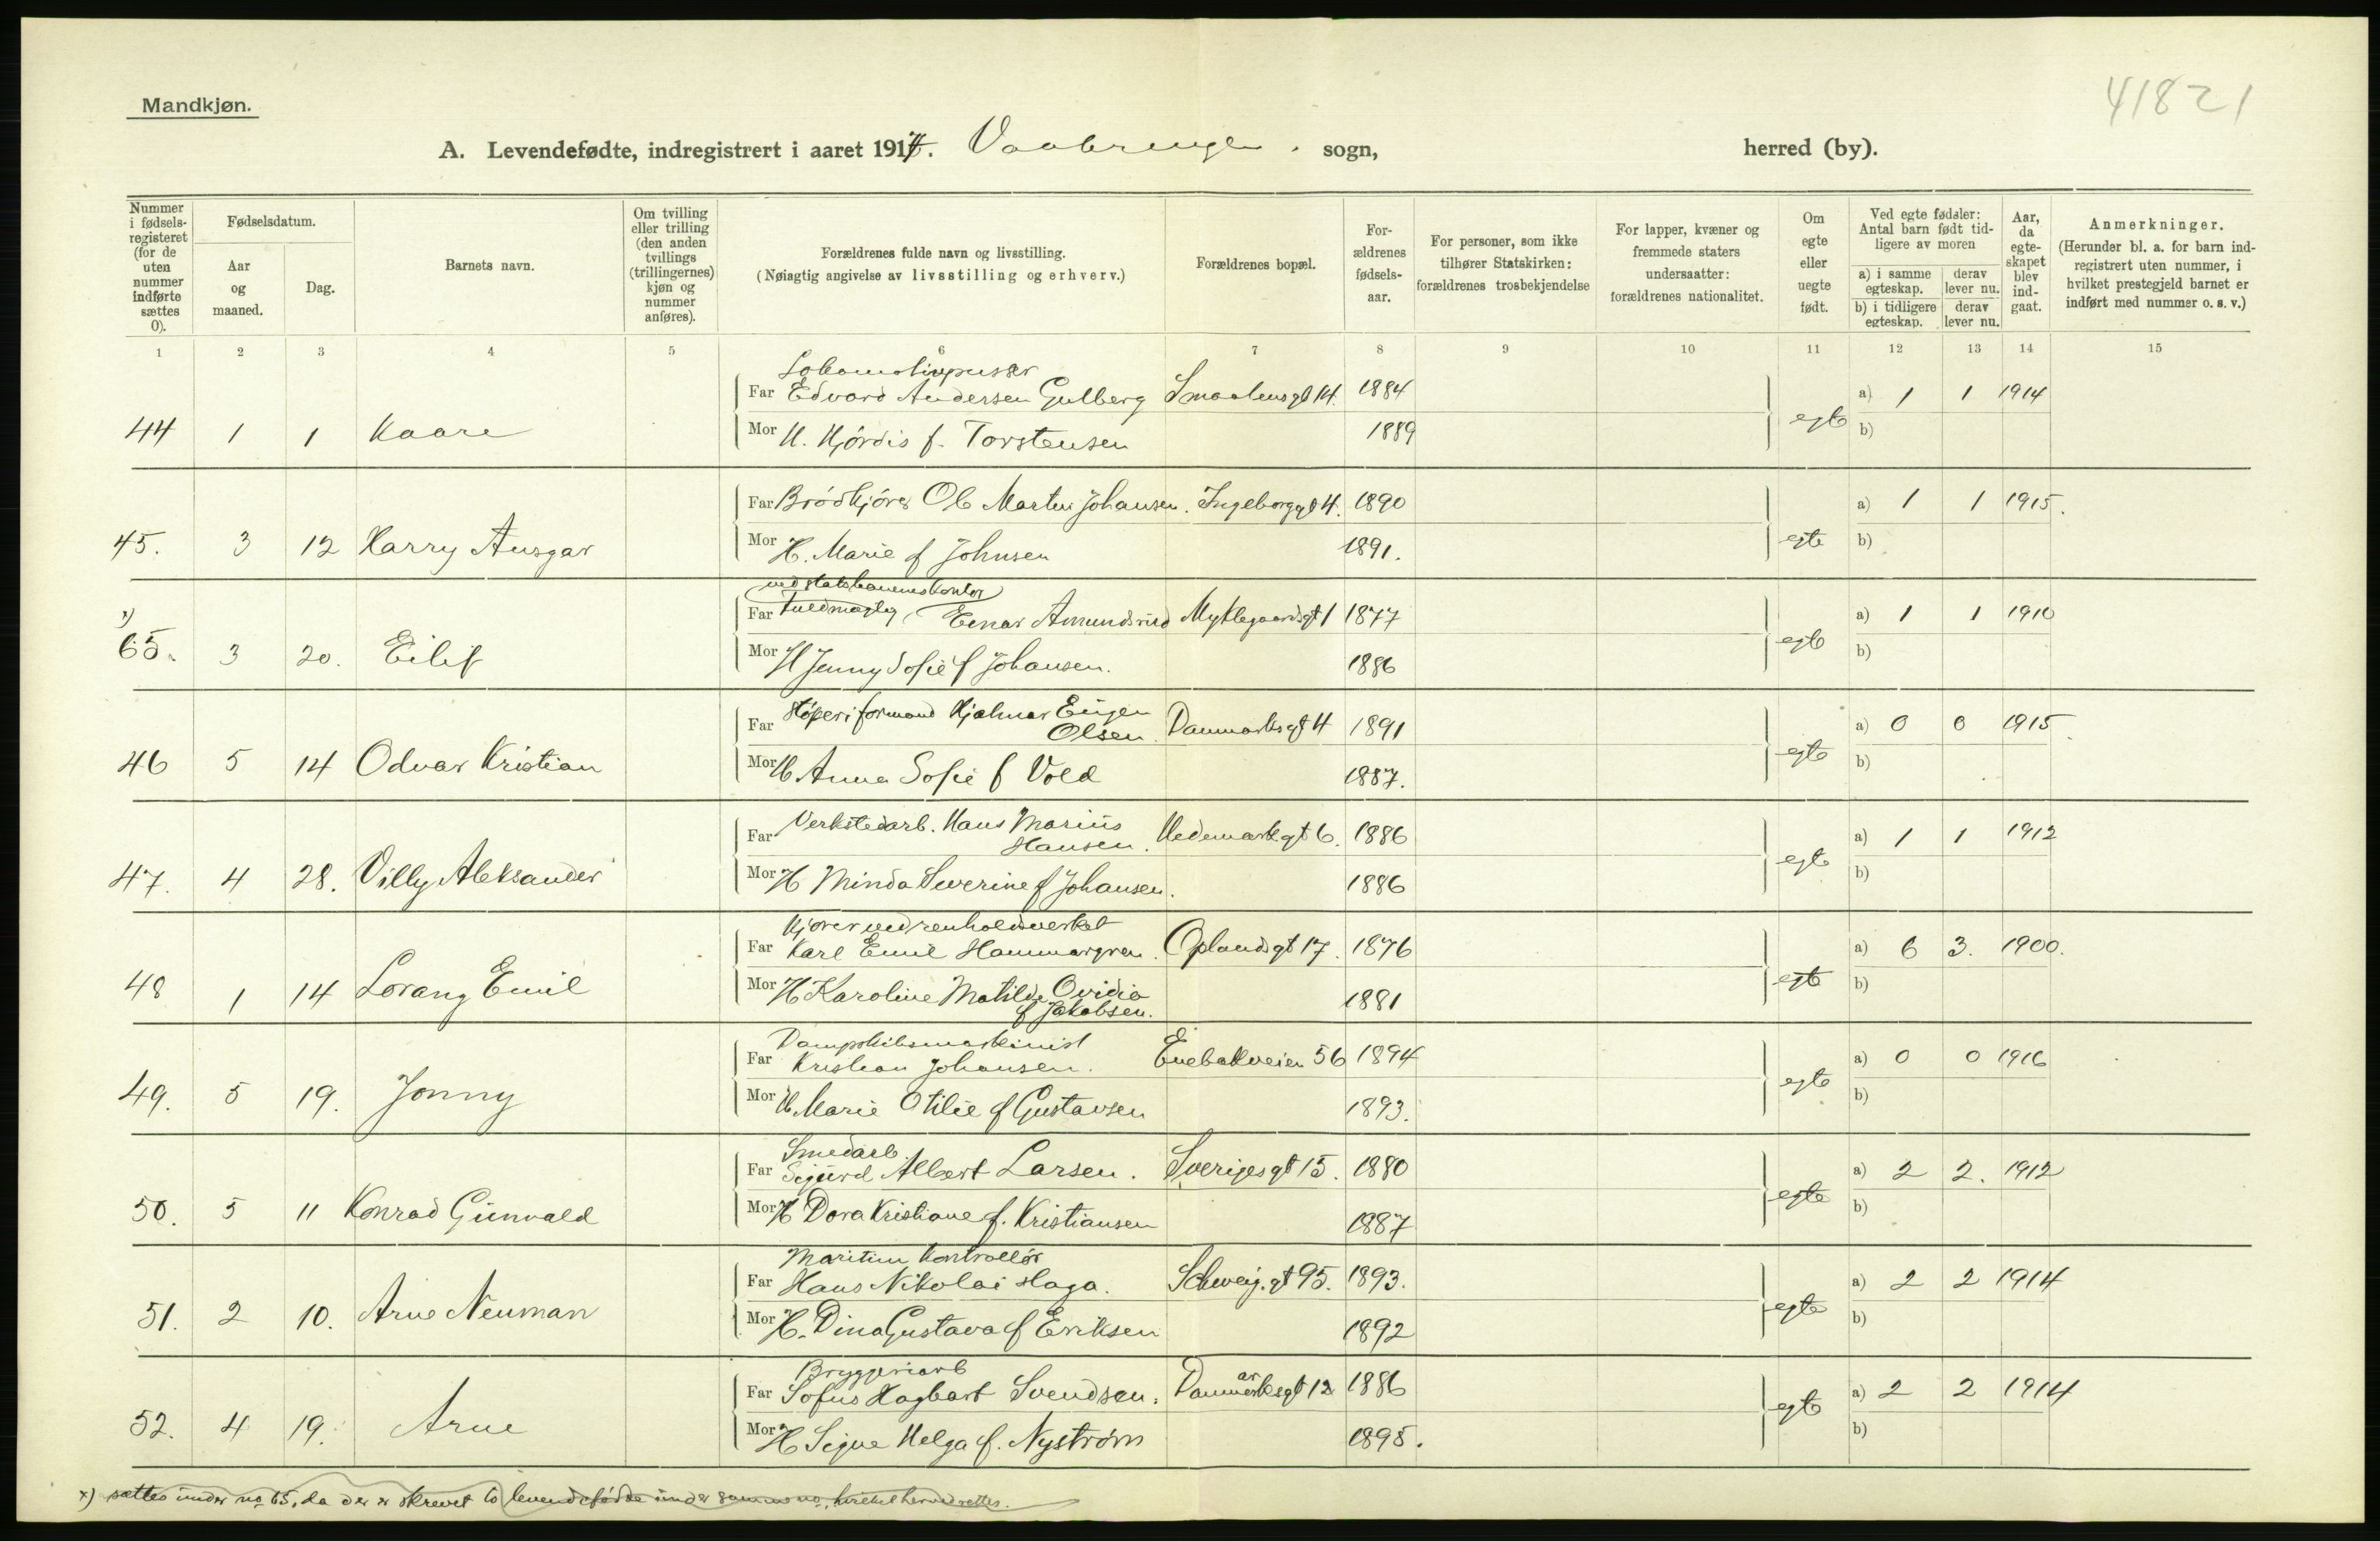 Mandkjøn.
41821
A. Levendefødte, indregistrert i aaret 1917. Vaalerengen. sogn, herred (by).
Nummer i fødselsregisteret (for de uten nummer indførte sættes 0).
Fødselsdatum.
Aar og maaned.
Dag.
Barnets navn.
Om tvilling eller trilling (den anden tvillings (trillingernes) kjøn og nummer anføres).
Forældrenes fulde navn og livsstilling.
(Nøiagtig angivelse av livsstilling og erhverv.)
Forældrenes bopæl.
Forældrenes fødselsaar.
For personer, som ikke tilhører Statskirken: forældrenes trosbekjendelse
For lapper, kvæner og fremmede staters undersaatter: forældrenes nationalitet.
Om egte eller uegte født.
Ved egte fødsler: Antal barn født tidligere av moren
a) i samme egteskap. derav lever nu.
b) i tidligere egteskap. derav lever nu.
Aar, da egteskapet blev indgaat.
Anmerkninger.
(Herunder bl. a. for barn indregistrert uten nummer, i hvilket prestegjeld barnet er indført med nummer o. s. v.)
1 2 3 4 5 6 7 8 9 10 11 12 13 14 15
Lokomotivpusser
Far Edvard Andersen Gulberg Smaalensgt 14. 1884 a) 1 1 1914
44 1 1 Kaare Mor H. Hjördis f. Torstensen 1889 egte b)
Far Brödkjörer Ole Martin Johansen. Ingeborggt 4. 1890 a) 1 1 1915.
45. 3 12 Harry Ansgar Mor H. Marie f Johnsen 1891. egte b)
ved statsbanernes kontor
Far Fuldmægtig Einar Amundsrud Myklegaardsgt 1 1877 a) 1 1 1910
x) 65. 3 20. Eilif Mor H Jenny Sofie f Johansen. 1886 egte b)
Far Stöperiformand Hjalmar Eugen
Olsen Danmarksgt 4 1891 a) 0 0 1915.
46 5 14 Odvar Kristian Mor H Anna Sofie f Vold 1887. egte b)
Far Verkstedarb. Hans Marius
Hansen. Hedemarkgt 6. 1886 a) 1 1 1912
47. 4 28. Villy Aleksander Mor H Minda Severine f Johansen. 1886 egte b)
Kjörer ved renholdsverket
Far Karl Emil Hammargren. Oplandsgt 17. 1876 a) 6 3. 1900.
48 1 14 Lorang Emil Mor H Karoline Matilde Ovidia
f Jakobsen. 1881 egte b)
Dampskibsmaskinist
Far Kristian Johansen. Enebakveien 56 1894 a) 0 0 1916
49. 5 19. Jonny Mor H Marie Otilie f Gustavsen 1893. egte b)
Smedarb.
Far Sigurd Albert Larsen. Sverigesgt 15. 1880 a) 2 2. 1912
50. 5 11 Konrad Günvald Mor H Dora Kristiane f. Kristiansen 1887 egte b)
Maritim Kontrollör
Far Hans Nikolai Haga. Schweig.gt 95. 1893. a) 2 2 1914
51. 2 10. Arne Neuman Mor H. Dina Gustava f Eriksen 1892 egte b)
Bryggeriarb
Far Sofus Hagbart Svendsen. Danmarksgt 12 1886 a) 2 2 1914
52. 4 19. Arne Mor H Signe Helga f. Nyström 1895. egte b)
x) sættes under no 65, da der er skrevet to levendefödte under samme no, hvilket herved rettes.